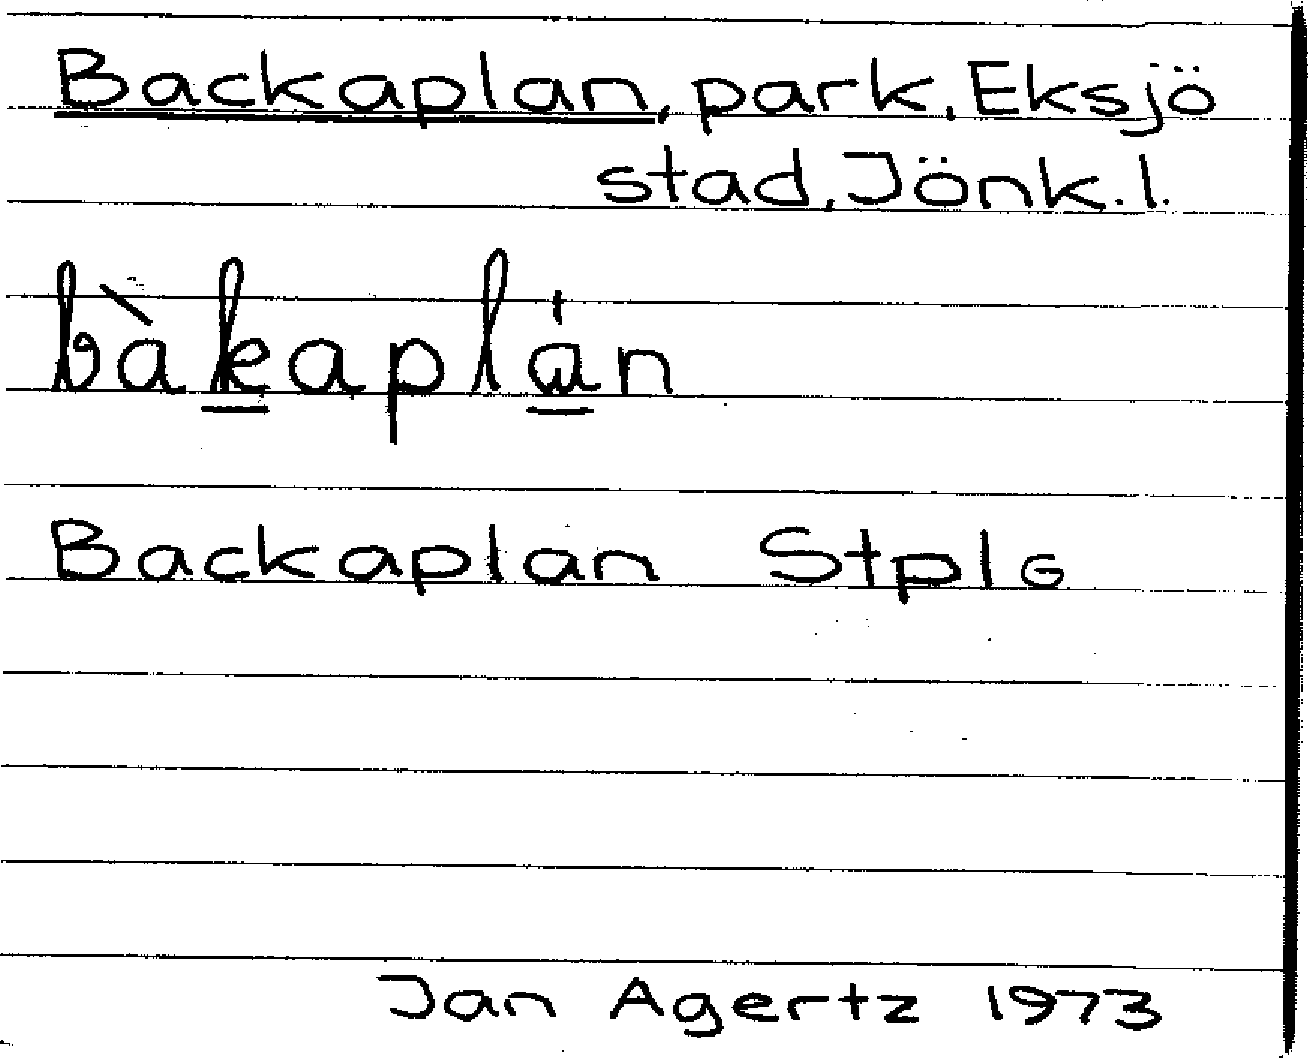 Backaplan, park, Eksjö
stad, Jönk. l.
bàkaplán
Backaplan Stplg
Jan Agertz 1973